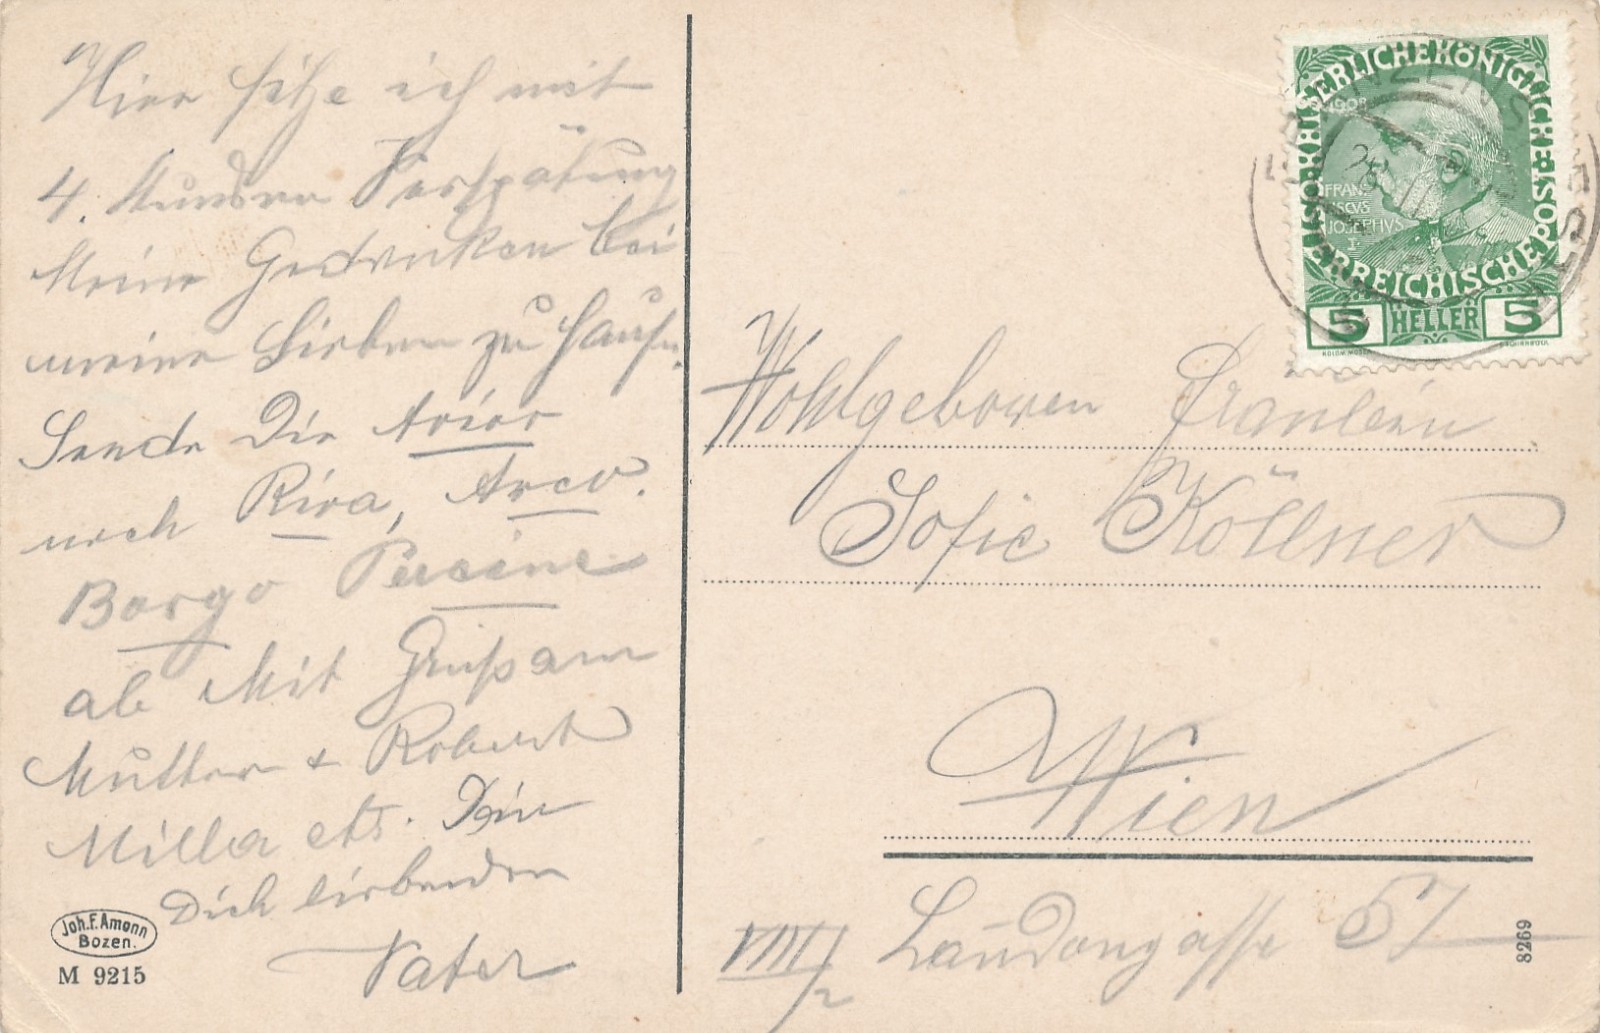 Hier sitze ich mit
4. Stunden Verspätung
Meine Gedanken bei
meine Lieben zu Hause.
Sende Dir
noch Riva, Arco.
Borgo
ab Mit Grüß an
Mutter + Robert
Milla etc. Dein
Dich liebenden
Vater
Joh. F. Amonn
Bozen.
M 9215
KAISERLICHEKÖNIGLICHE
ÖSTERREICHISCHEPOST
1908
FRANCISCVS
JOSEPHVS
I
5 HELLER 5
FRANZENSFESTE
Wohlgeboren Fräulein
Sofie Köllner
Wien
VIII/2 Laudongasse 57
8269